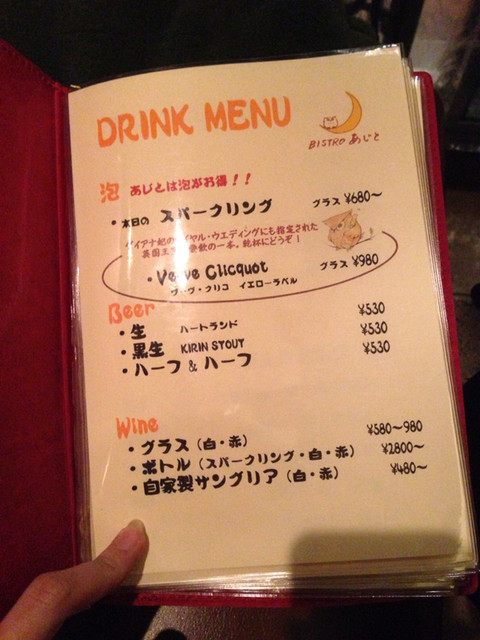 DRINK MENU
BISTRO あじと
泡 あじとは泡がお得!!
・本日の スパークリング グラス ¥680~
ダイアナ妃の イヤル・ウエディングにも指定された
英国王 愛飲の一本。乾杯にどうぞ!
・Veuve Clicquot グラス ¥980
ヴーヴ・クリコ イエローラベル
Beer
・生 ハートランド ¥530
・黒生 KIRIN STOUT ¥530
・ハーフ & ハーフ ¥530
Wine
・グラス (白・赤) ¥580~980
・ボトル (スパークリング・白・赤) ¥2800~
・自家製サングリア (白・赤) ¥480~